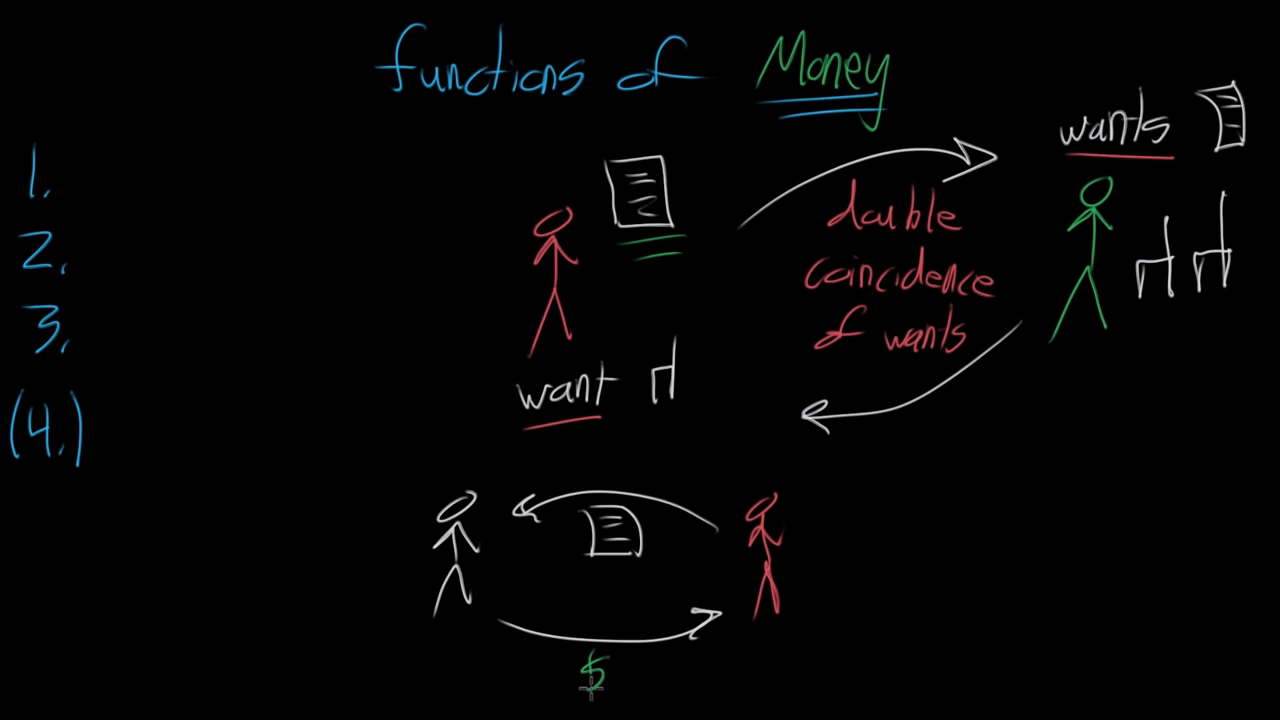 functions of Money
1.
2.
3.
(4.)
wants
double
coincidence
of wants
want
$